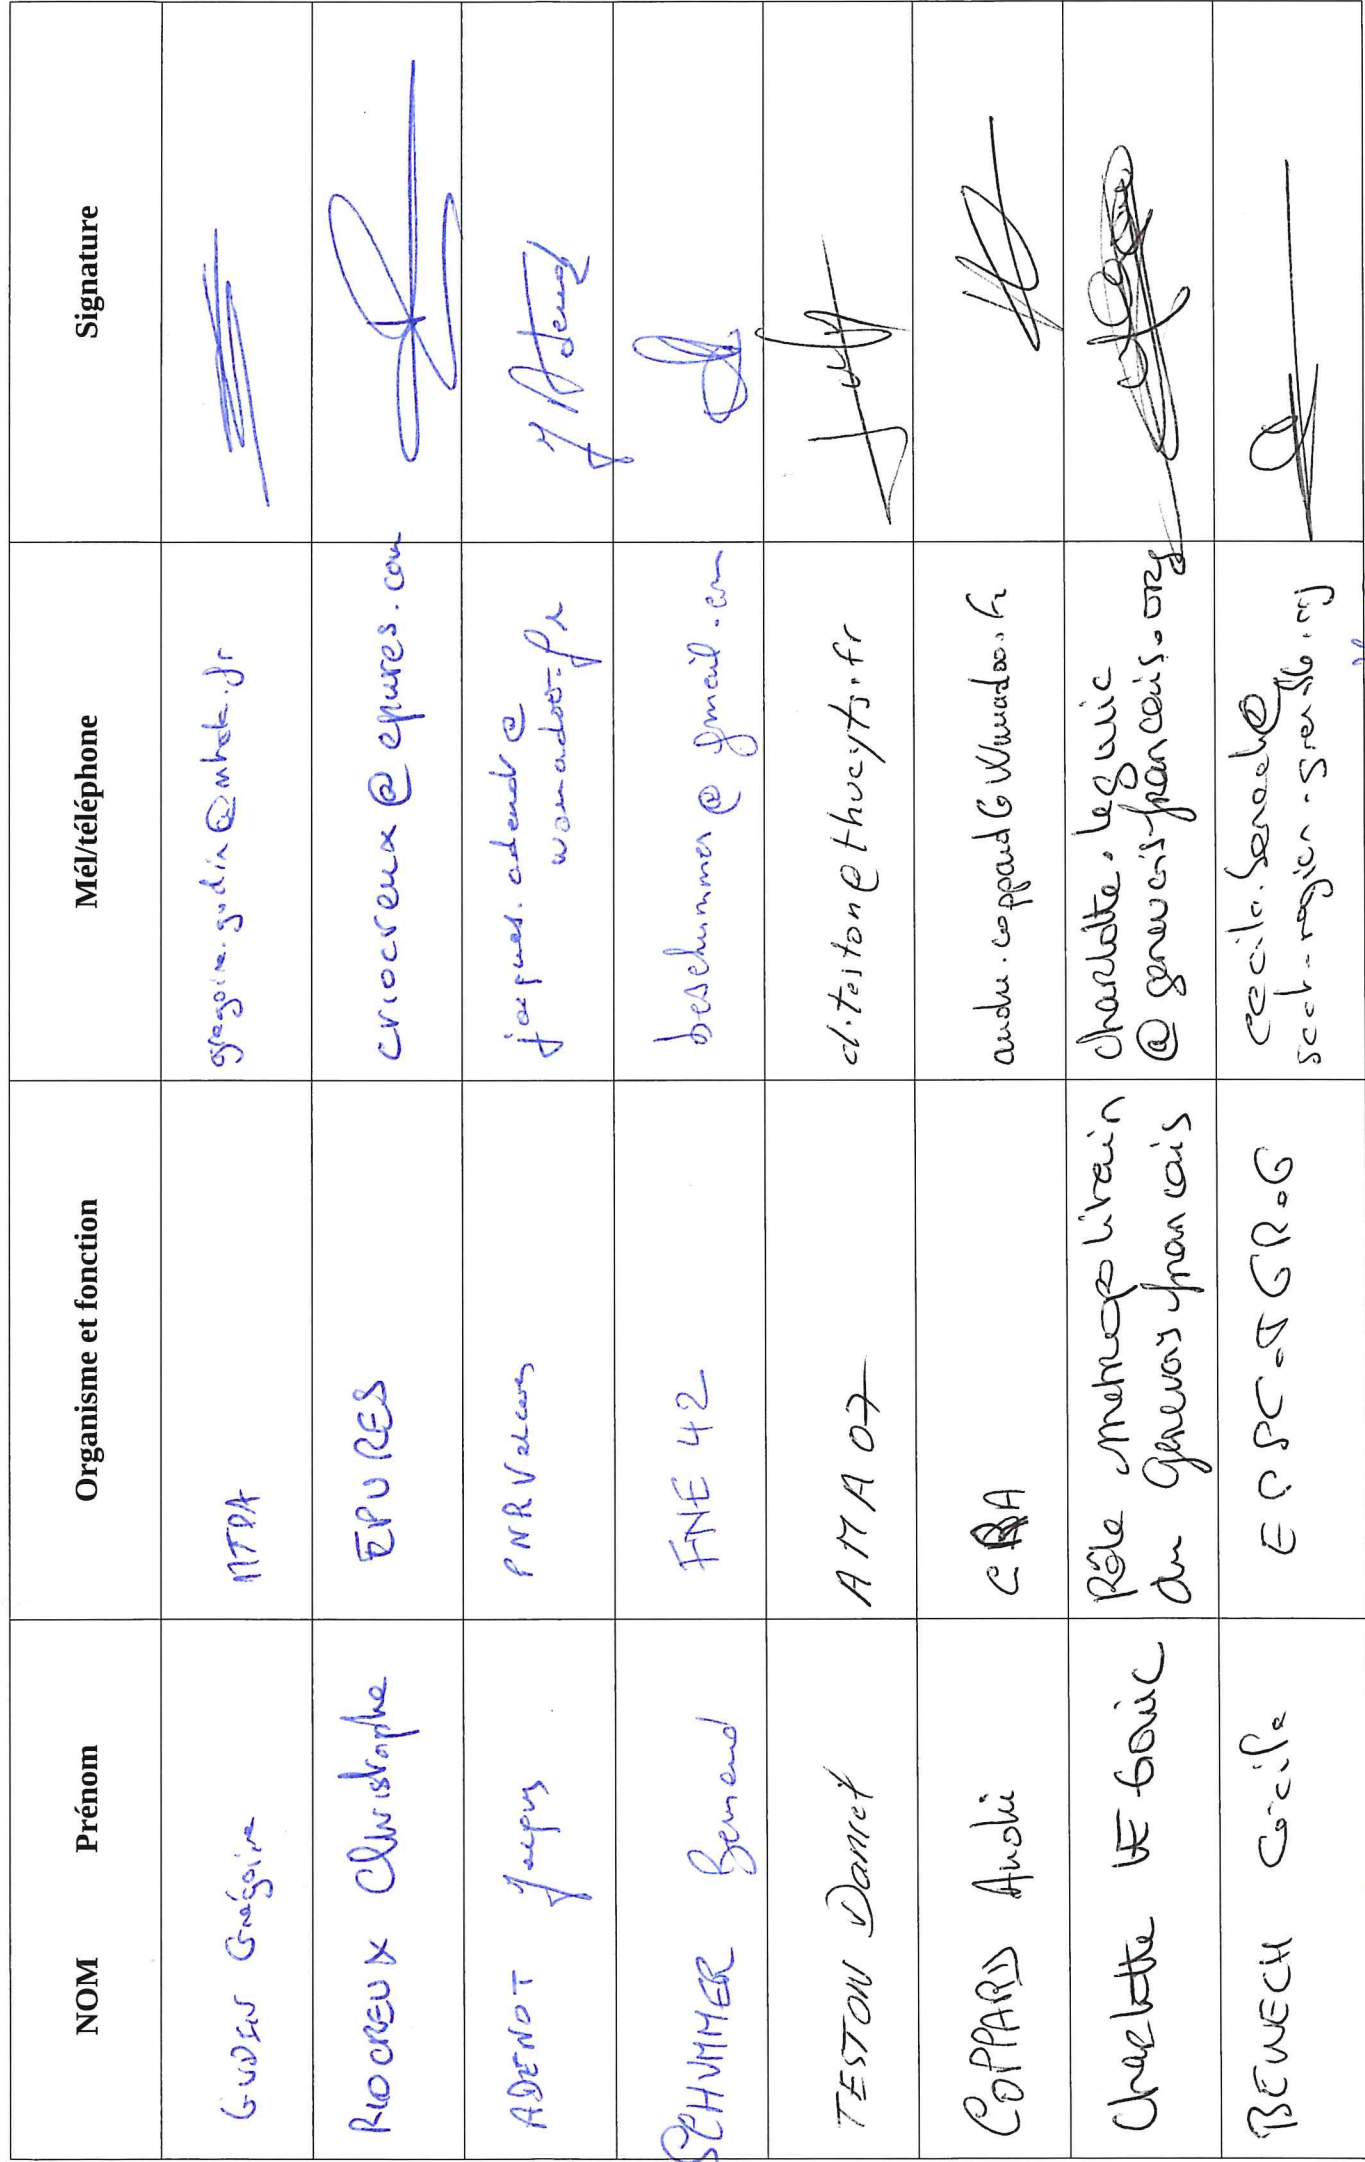 NOM Prénom Organisme et fonction Mél/téléphone Signature
GUDIN Grégoire MTDA gregoire.gudin@mtda.fr
RIOCREUX Christophe EPURES criocreux@epures.com
ADENOT Jacques PNR Vercors jacques.adenot@
wanadoo.fr
J Adenot
SCHUMMER Bernard FNE 42 beschummer@gmail.com
TESTON Daniel AMA 07 d.teston@thucyts.fr
COPPARD André andre.coppard@wanadoo.fr
Charlotte LE GOUIC Pôle métropolitain
du genevois français
charlotte.legouic
@genevoisfrancais.org
BENECH Cécile EP SCOT GREG cecile.benech@
scot-region-grenoble.org